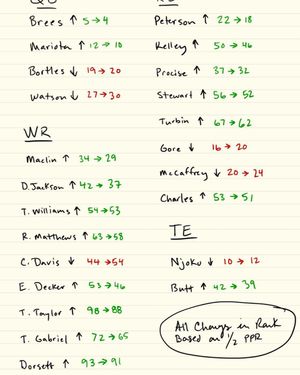 QB
Brees ↑ 5→4
Mariota ↑ 12→10
Bortles ↓ 19→20
Watson ↓ 27→30
WR
Maclin ↑ 34→29
D. Jackson ↑ 42→37
T. Williams ↑ 54→53
R. Matthews ↑ 63→58
C. Davis ↓ 44→54
E. Decker ↑ 53→46
T. Taylor ↑ 98→88
T. Gabriel ↑ 72→65
Dorsett ↑ 93→91
Peterson ↑ 22→18
Kelley ↑ 50→46
Procise ↑ 37→32
Stewart ↑ 56→52
Turbin ↑ 67→62
Gore ↓ 16→20
McCaffrey ↓ 20→24
Charles ↑ 53→51
TE
Njoku ↓ 10→12
Butt ↑ 42→39
All Changes in Rank
Based on 1/2 PPR